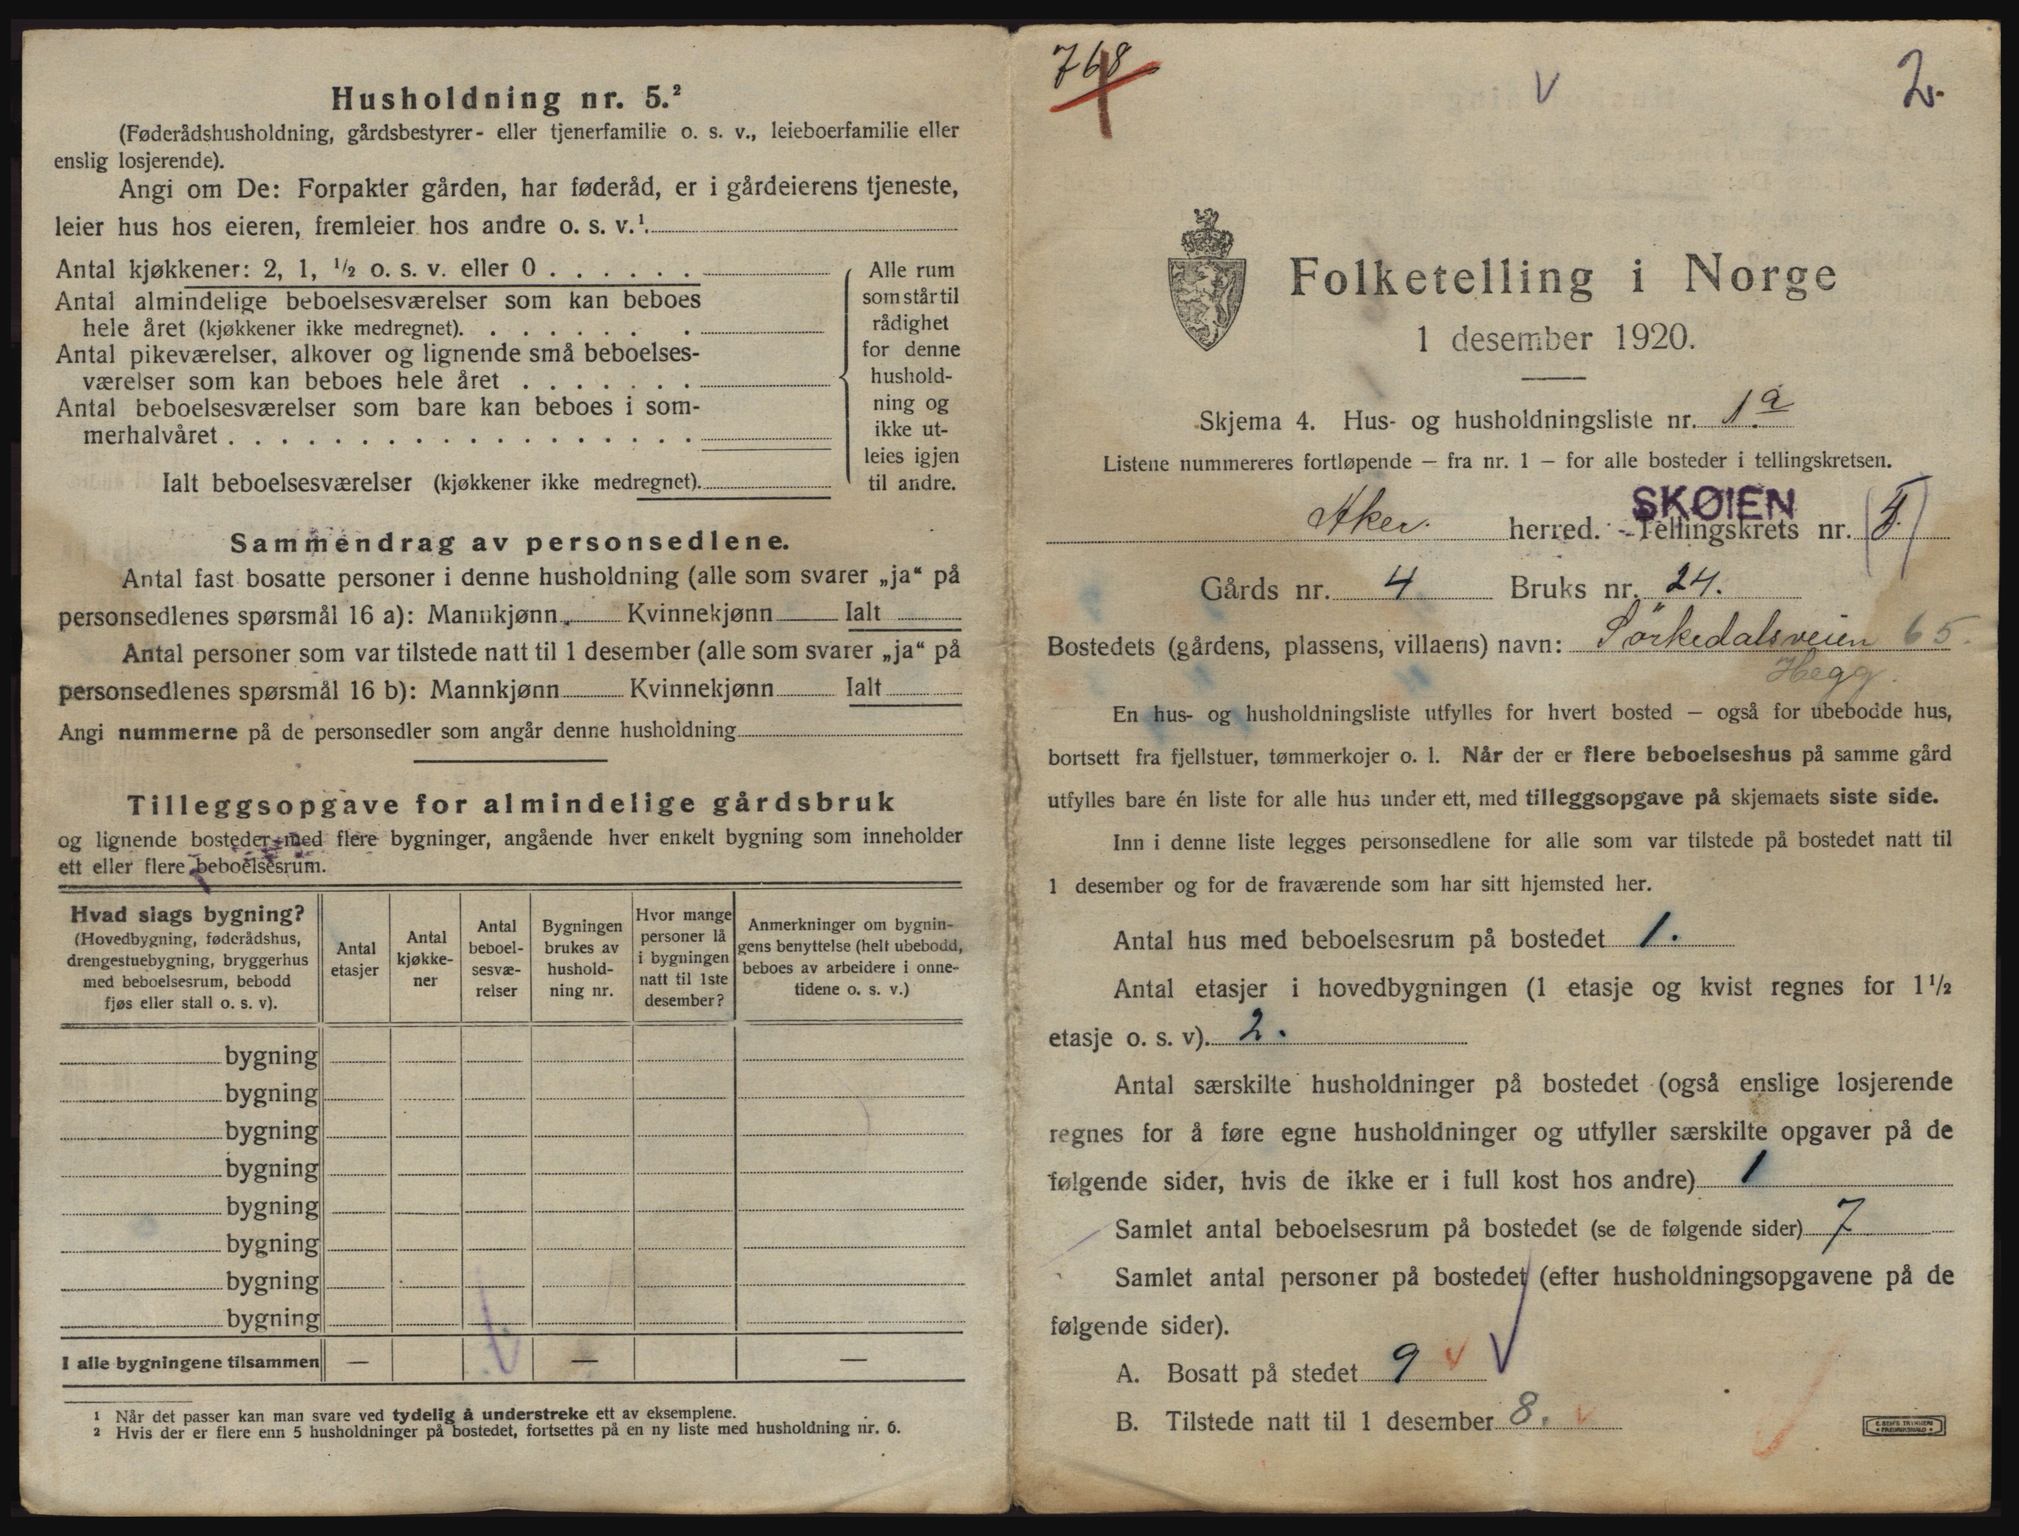 Husholdning nr. 5.²
(Føderådshusholdning, gårdsbestyrer- eller tjenerfamilie o. s. v., leieboerfamilie eller
enslig losjerende).
Angi om De: Forpakter gården, har føderåd, er i gårdeierens tjeneste,
leier hus hos eieren, fremleier hos andre o. s. v.¹.
Antal kjøkkener: 2, 1, ½ o. s. v. eller 0 . . . . . .
Antal almindelige beboelsesværelser som kan beboes
hele året (kjøkkener ikke medregnet). . . . . . . .
Antal pikeværelser, alkover og lignende små beboelses-
værelser som kan beboes hele året . . . . . . .
Antal beboelsesværelser som bare kan beboes i som-
merhalvåret . . . . . . . . . . . . . . . . . .
Ialt beboelsesværelser (kjøkkener ikke medregnet).
Alle rum
som står til
rådighet
for denne
hushold-
ning og
ikke ut-
leies igjen
til andre.
Sammendrag av personsedlene.
Antal fast bosatte personer i denne husholdning (alle som svarer „ja“ på
personsedlenes spørsmål 16 a): Mannkjønn Kvinnekjønn Ialt
Antal personer som var tilstede natt til 1 desember (alle som svarer „ja“ på
personsedlenes spørsmål 16 b): Mannkjønn Kvinnekjønn Ialt
Angi nummerne på de personsedler som angår denne husholdning
Tilleggsopgave for almindelige gårdsbruk
og lignende bosteder med flere bygninger, angående hver enkelt bygning som inneholder
ett eller flere beboelsesrum.
Hvad slags bygning?
(Hovedbygning, føderådshus,
drengestuebygning, bryggerhus
med beboelsesrum, bebodd
fjøs eller stall o. s. v).
Antal
etasjer
Antal
kjøkke-
ner
Antal
beboel-
sesvæ-
relser
Bygningen
brukes av
hushold-
ning nr.
Hvor mange
personer lå
i bygningen
natt til 1ste
desember?
Anmerkninger om bygnin-
gens benyttelse (helt ubebodd,
beboes av arbeidere i onne-
tidene o. s. v.)
bygning
bygning
bygning
bygning
bygning
bygning
bygning
bygning
I alle bygningene tilsammen — — —
¹ Når det passer kan man svare ved tydelig å understreke ett av eksemplene.
² Hvis der er flere enn 5 husholdninger på bostedet, fortsettes på en ny liste med husholdning nr. 6.
768
2.
Folketelling i Norge
1 desember 1920.
Skjema 4. Hus- og husholdningsliste nr. 1 a
Listene nummereres fortløpende — fra nr. 1 — for alle bosteder i tellingskretsen.
SKØIEN
Aker. herred. Tellingskrets nr.
Gårds nr. 4 Bruks nr. 24.
Bostedets (gårdens, plassens, villaens) navn: Sörkedalsveien 65.
Hegg.
En hus- og husholdningsliste utfylles for hvert bosted — også for ubebodde hus,
bortsett fra fjellstuer, tømmerkojer o. l. Når der er flere beboelseshus på samme gård
utfylles bare én liste for alle hus under ett, med tilleggsopgave på skjemaets siste side.
Inn i denne liste legges personsedlene for alle som var tilstede på bostedet natt til
1 desember og for de fraværende som har sitt hjemsted her.
Antal hus med beboelsesrum på bostedet 1.
Antal etasjer i hovedbygningen (1 etasje og kvist regnes for 1½
etasje o. s. v). 2.
Antal særskilte husholdninger på bostedet (også enslige losjerende
regnes for å føre egne husholdninger og utfyller særskilte opgaver på de
følgende sider, hvis de ikke er i full kost hos andre) 1
Samlet antal beboelsesrum på bostedet (se de følgende sider) 7
Samlet antal personer på bostedet (efter husholdningsopgavene på de
følgende sider).
A. Bosatt på stedet 9
B. Tilstede natt til 1 desember 8.